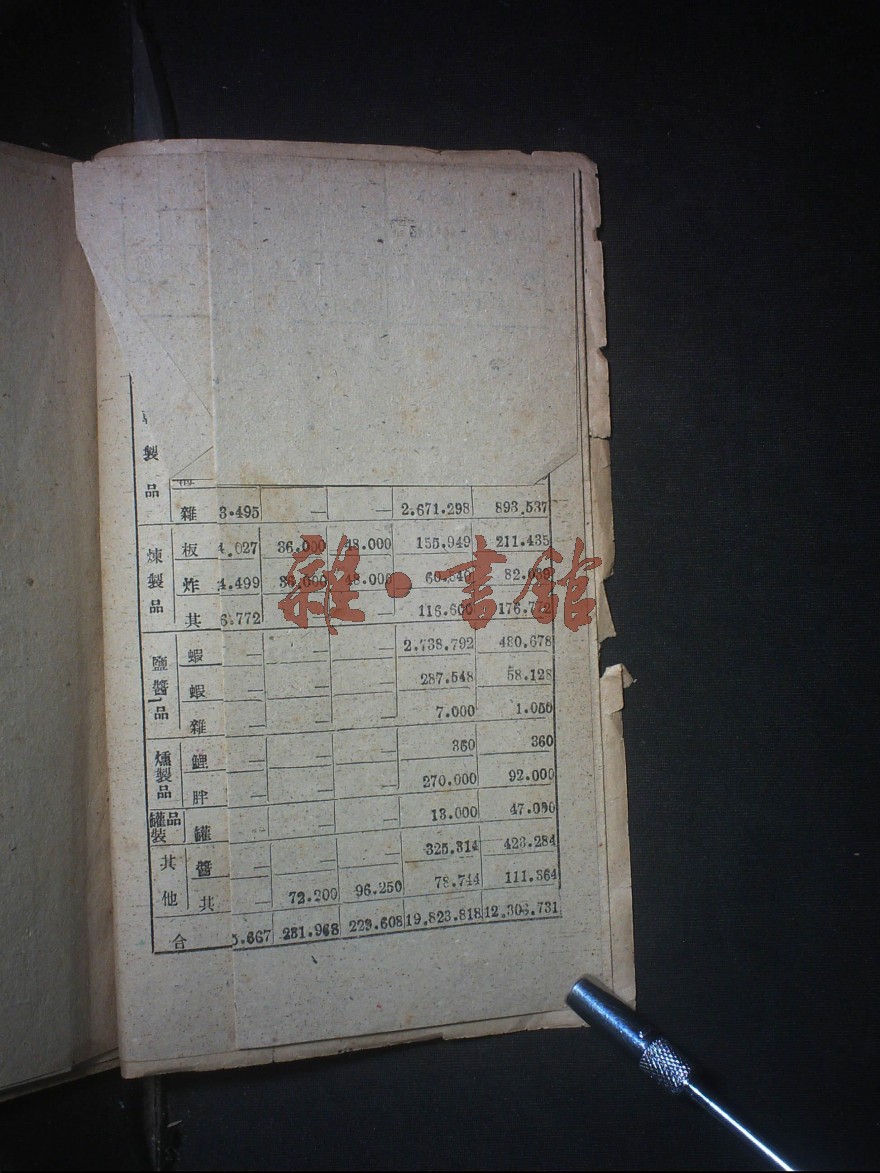 製品
雜 3.495 — — 2.671.298 893.537
煉製品 板 4.027 36.000 48.000 155.949 211.435
炸 4.499 36.000 48.000
其 6.772 — 176.772
鹽醬品 蝦 — — — 2.738.792 480.678
蝦 — — — 287.548 58.128
雜 — — — 7.000 1.050
燻製品 鯉 — — — 360 360
胖 — — — 270.000 92.000
罐品裝 罐 — — 13.000 47.090
其他 醬 — — — 325.314 423.284
其 — 72.200 96.250 78.744 111.364
合 5.667 231.968 229.608 19.823.818 12.306.731
雜·書館